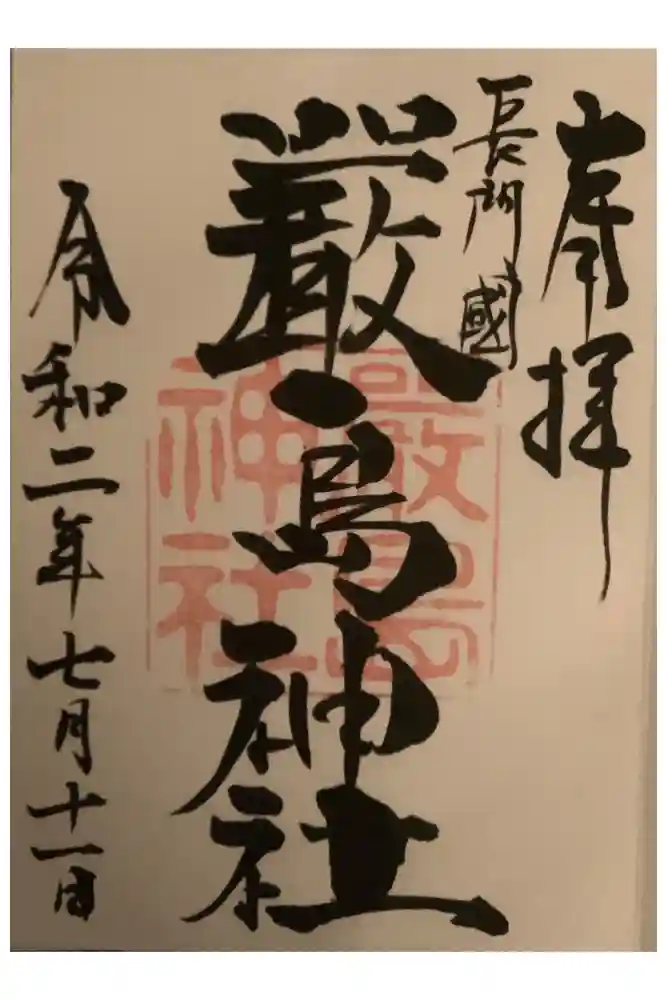 奉拝
長門國
嚴島神社
嚴島神社
令和二年七月十一日